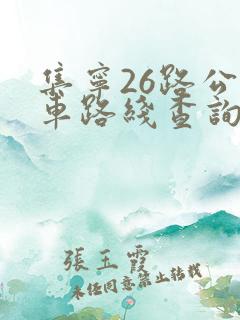 集寧26路公
車路綫查詢
張玉霞
未经同意禁止转载